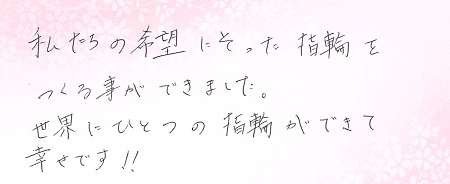 私たちの希望にそった指輪を
つくる事ができました。
世界にひとつの指輪ができて
幸せです!!